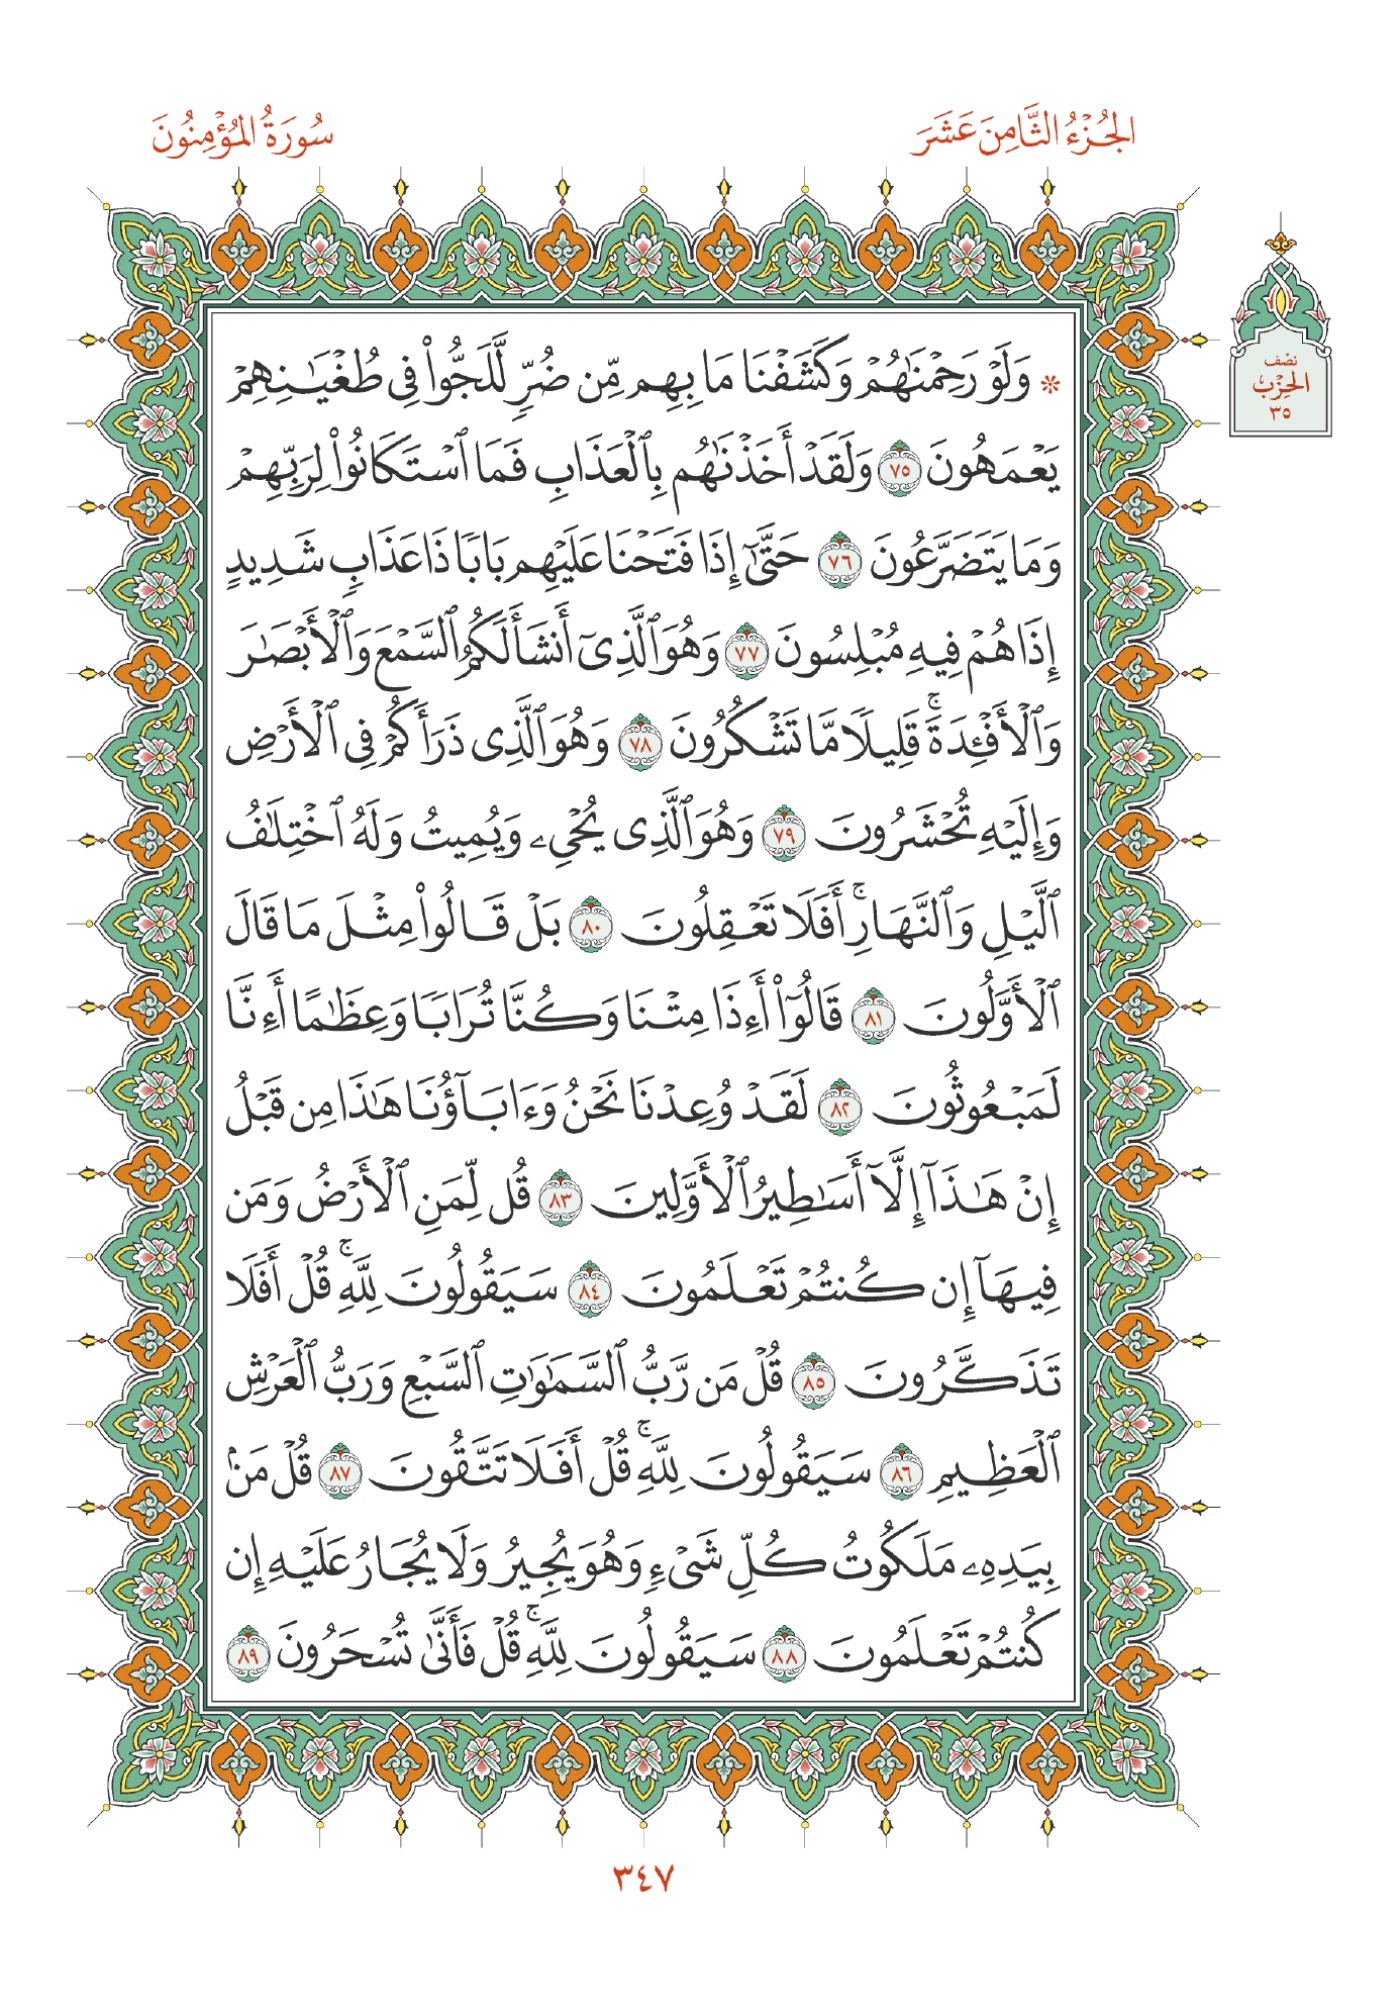 الجُزْءُ الثَّامِنَ عَشَرَ
سُورَةُ المُؤْمِنُونَ
نصْف
الحِزْب
٣٥
* وَلَوْ رَحِمْنَٰهُمْ وَكَشَفْنَا مَا بِهِم مِّن ضُرٍّ لَّلَجُّوا۟ فِى طُغْيَٰنِهِمْ
يَعْمَهُونَ ٧٥ وَلَقَدْ أَخَذْنَٰهُم بِٱلْعَذَابِ فَمَا ٱسْتَكَانُوا۟ لِرَبِّهِمْ
وَمَا يَتَضَرَّعُونَ ٧٦ حَتَّىٰٓ إِذَا فَتَحْنَا عَلَيْهِم بَابًا ذَا عَذَابٍ شَدِيدٍ
إِذَا هُمْ فِيهِ مُبْلِسُونَ ٧٧ وَهُوَ ٱلَّذِىٓ أَنشَأَ لَكُمُ ٱلسَّمْعَ وَٱلْأَبْصَٰرَ
وَٱلْأَفْـِٔدَةَ ۚ قَلِيلًا مَّا تَشْكُرُونَ ٧٨ وَهُوَ ٱلَّذِى ذَرَأَكُمْ فِى ٱلْأَرْضِ
وَإِلَيْهِ تُحْشَرُونَ ٧٩ وَهُوَ ٱلَّذِى يُحْىِۦ وَيُمِيتُ وَلَهُ ٱخْتِلَٰفُ
ٱلَّيْلِ وَٱلنَّهَارِ ۚ أَفَلَا تَعْقِلُونَ ٨٠ بَلْ قَالُوا۟ مِثْلَ مَا قَالَ
ٱلْأَوَّلُونَ ٨١ قَالُوٓا۟ أَءِذَا مِتْنَا وَكُنَّا تُرَابًا وَعِظَٰمًا أَءِنَّا
لَمَبْعُوثُونَ ٨٢ لَقَدْ وُعِدْنَا نَحْنُ وَءَابَآؤُنَا هَٰذَا مِن قَبْلُ
إِنْ هَٰذَآ إِلَّآ أَسَٰطِيرُ ٱلْأَوَّلِينَ ٨٣ قُل لِّمَنِ ٱلْأَرْضُ وَمَن
فِيهَآ إِن كُنتُمْ تَعْلَمُونَ ٨٤ سَيَقُولُونَ لِلَّهِ ۚ قُلْ أَفَلَا
تَذَكَّرُونَ ٨٥ قُلْ مَن رَّبُّ ٱلسَّمَٰوَٰتِ ٱلسَّبْعِ وَرَبُّ ٱلْعَرْشِ
ٱلْعَظِيمِ ٨٦ سَيَقُولُونَ لِلَّهِ ۚ قُلْ أَفَلَا تَتَّقُونَ ٨٧ قُلْ مَنۢ
بِيَدِهِۦ مَلَكُوتُ كُلِّ شَىْءٍ وَهُوَ يُجِيرُ وَلَا يُجَارُ عَلَيْهِ إِن
كُنتُمْ تَعْلَمُونَ ٨٨ سَيَقُولُونَ لِلَّهِ ۚ قُلْ فَأَنَّىٰ تُسْحَرُونَ ٨٩
٣٤٧